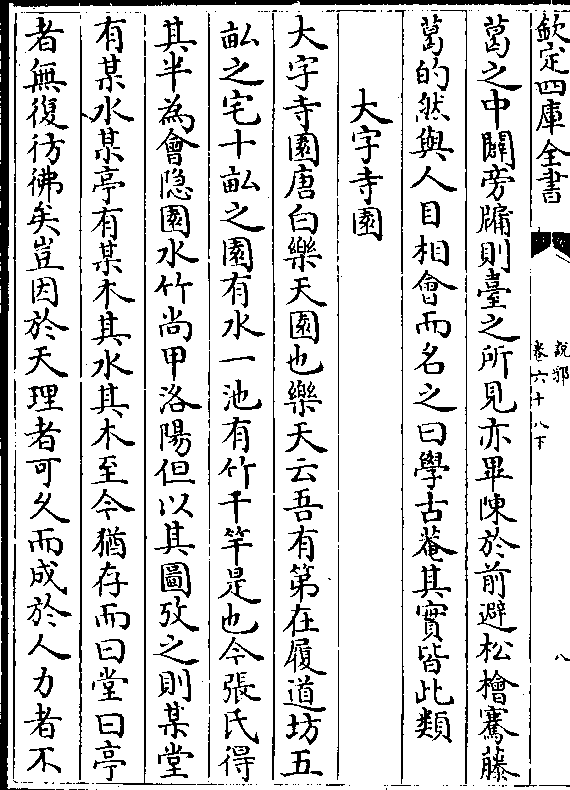 欽定四庫全書
說郛
卷六十八下
八
葛之中闢旁牖則臺之所見亦畢陳於前避松檜騫藤
葛的然與人目相會而名之曰學古菴其實皆此類
大字寺園
大字寺園唐白樂天園也樂天云吾有第在履道坊五
畝之宅十畝之園有水一池有竹千竿是也今張氏得
其半為會隠園水竹尚甲洛陽但以其圖攷之則某堂
有某水某亭有某木其水其木至今猶存而曰堂曰亭
者無復彷彿矣豈因於天理者可久而成於人力者不